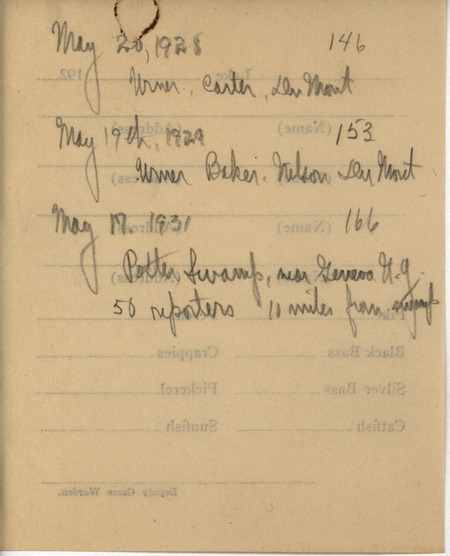 May 20, 1928 146
Urner, Carter, Du Mont
May 19th, 1929 153
Urner Baker. Nelson Du Mont
May 17, 1931 166
Potter Swamp, near Geneva N.Y.
50 reporters 10 miles from swamp
Lake, 192
(Name) (Address)
(Name) (Address)
(Name) (Address)
Black Bass Crappies
Silver Bass Pickerel
Catfish Sunfish
Deputy Game Warden.